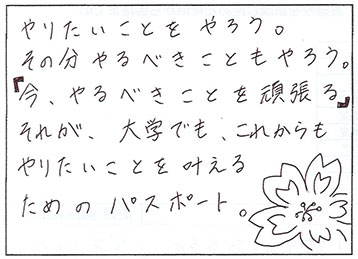 やりたいことをやろう。
その分やるべきこともやろう。
『今、やるべきことを頑張る』
それが、大学でも、これからも
やりたいことを叶える
ためのパスポート。